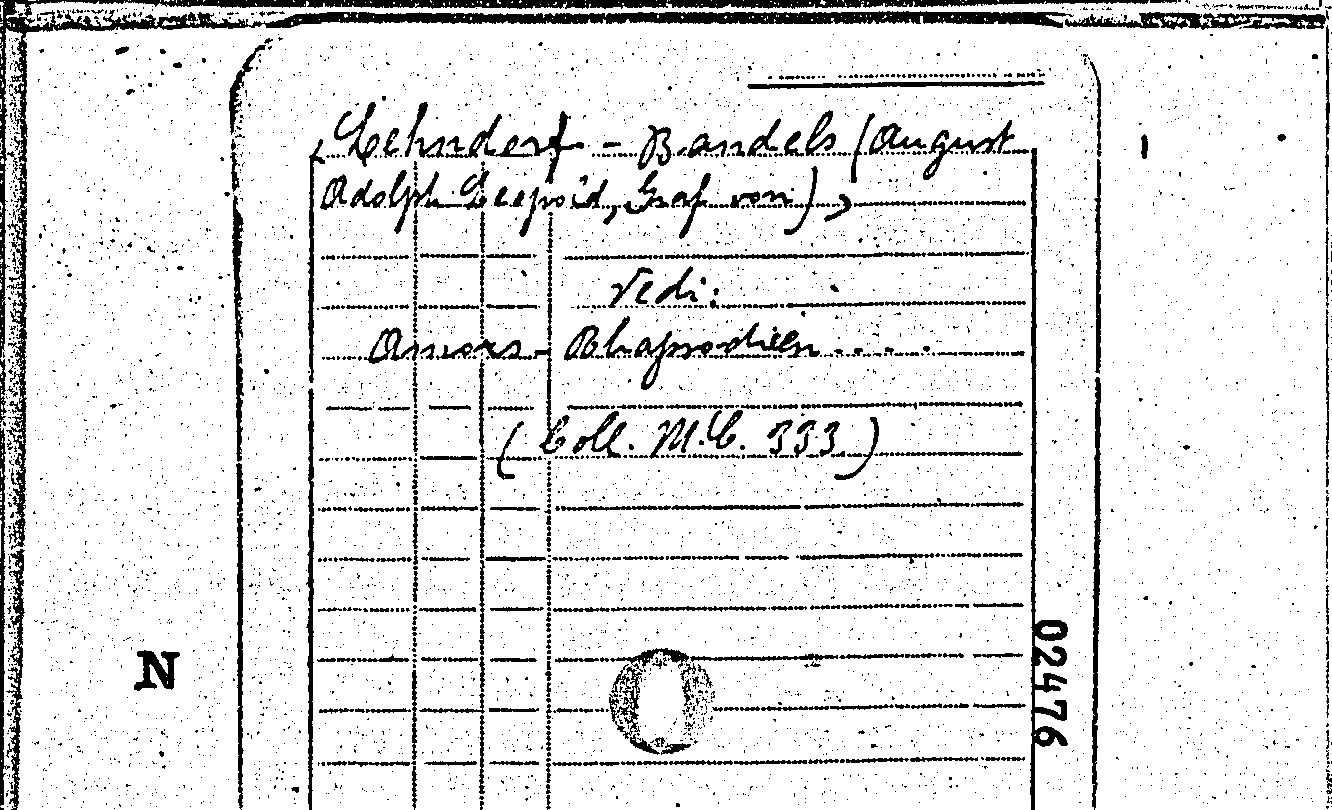 <Lehndorf - Bandels (August
Adolph Leopold, Graf von)>
Vedi:
Amors - Rhapsodien....
(Coll. M.C. 333)
N
02476